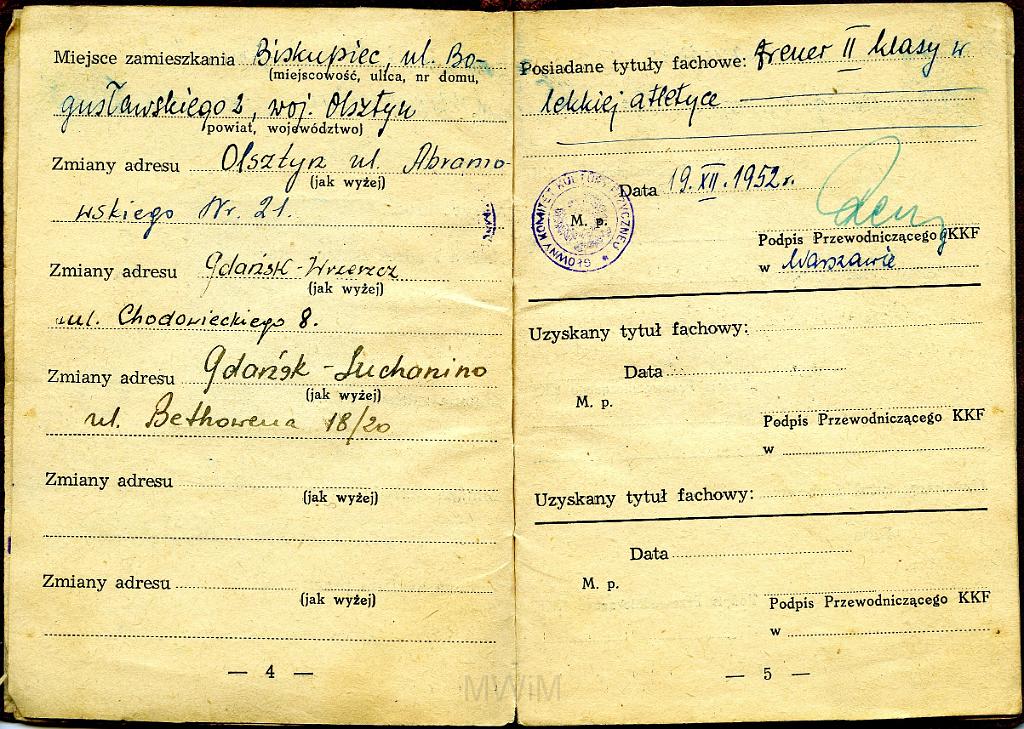 Miejsce zamieszkania Biskupiec, ul. Bo-
(miejscowość, ulica, nr domu,
gusławskiego 2, woj. Olsztyn
powiat, województwo)
Zmiany adresu Olsztyn ul. Abramo-
(jak wyżej)
wskiego Nr. 21.
Zmiany adresu Gdańsk-Wrzeszcz
(jak wyżej)
ul. Chodowieckiego 8.
Zmiany adresu Gdańsk-Suchanino
(jak wyżej)
ul. Bethowena 18/20
Zmiany adresu
(jak wyżej)
Zmiany adresu
(jak wyżej)
— 4 —
Posiadane tytuły fachowe: trener II klasy w
lekkiej atletyce
Data 19.XII.1952r.
GŁÓWNY KOMITET KULTURY FIZYCZNEJ
M. p.
Podpis Przewodniczącego GKKF
w Warszawie
Uzyskany tytuł fachowy:
Data
M. p.
Podpis Przewodniczącego KKF
w
Uzyskany tytuł fachowy:
Data
M. p.
Podpis Przewodniczącego KKF
w
— 5 —
MWiM